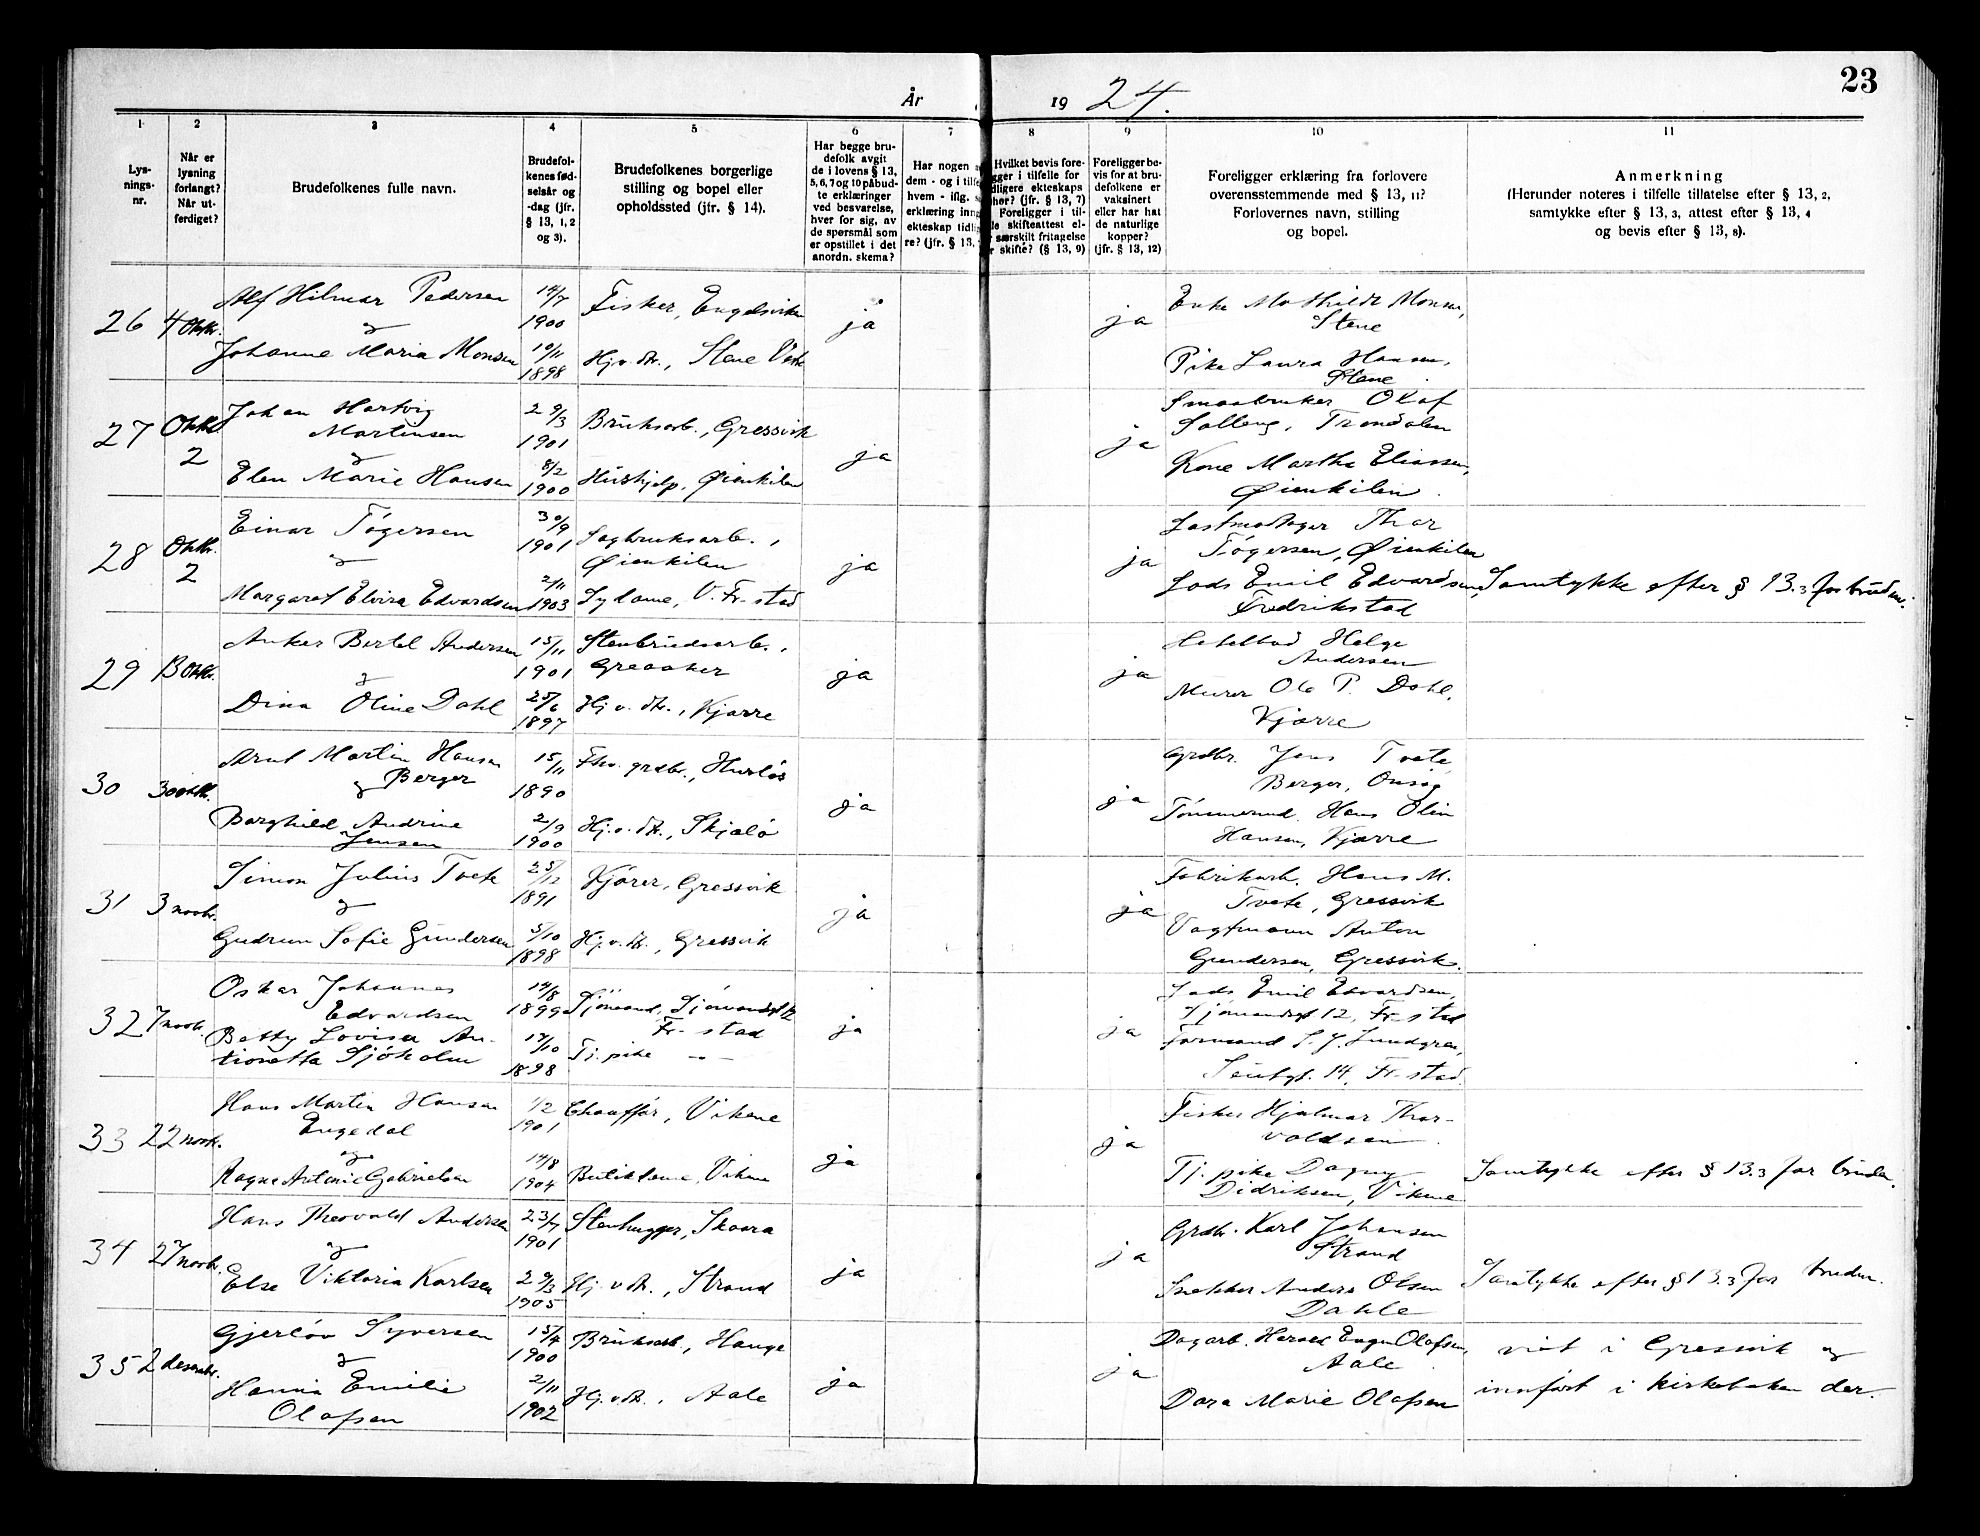 23
År 19 24.
1 2 3 4 5 6 7 8 9 10 11
Lys-
nings-
nr.
Når er
lysning
forlangt?
Når ut-
ferdiget?
Brudefolkenes fulle navn.
Brudefol-
kenes fød-
selsår og
-dag (jfr.
§ 13, 1, 2
og 3).
Brudefolkenes borgerlige
stilling og bopel eller
opholdssted (jfr. § 14).
Har begge bru-
defolk avgit
de i lovens § 13,
5, 6, 7 og 10 påbud-
te erklæringer
ved besvarelse,
hver for sig, av
de spørsmål som
er opstillet i det
anordn. skema?
Har nogen
dem - og i tilfe
hvem - iflg.
erklæring inng
ekteskap tidli
re? (jfr. § 13,
Hvilket bevis fore-
gger i tilfelle for
dligere ekteskaps
hør? (jfr. § 13, 7)
Foreligger i til-
le skifteattest el-
særskilt fritagelse
r skifte? (§ 13, 9)
Foreligger be-
vis for at bru-
defolkene er
vaksinert
eller har hat
de naturlige
kopper?
(jfr. § 13, 12)
Foreligger erklæring fra forlovere
overensstemmende med § 13, 11?
Forlovernes navn, stilling
og bopel.
Anmerkning
(Herunder noteres i tilfelle tillatelse efter § 13, 2,
samtykke efter § 13, 3, attest efter § 13, 4
og bevis efter § 13, 8).
26 4 Oktbr. Alf Hilmar Pedersen 14/7 1900 Fisker, Engelsviken ja ja Enke Mathilde Monsen,
Stene
og
Johanne Maria Monsen 10/11 1898 Hj.v.dt., Stene Pike Laura Hansen,
Stene
27 Oktbr. 2 Johan Hartvig
Martinsen 29/3 1901 Bruksarb., Gressvik ja ja Smaabruker Olaf
Solleng, Trondalen
og
Elen Marie Hansen 8/2 1900 Hushjelp, Øienkilen Kone Martha Eliassen,
Øienkilen.
28 Oktbr. 2 Einar Tøgersen 30/9 1901 Sagbruksarb.,
Øienkilen ja ja Lastmodtager Thor
Tøgersen, Øienkilen
og
Margaret Elvira Edvardsen 2/11 1903 Sydame, V. Fr.stad Lods Emil Edvardsen,
Fredrikstad Samtykke efter § 13.3 for bruden.
29 Oktbr. Anker Bertel Andersen 15/11 1901 Stenbrudsarb.,
Greaaker ja ja Helge
Andersen
og
Dina Oline Dahl 25/6 1897 Hj.v.dt., Kjærre Murer Ole P. Dahl,
Kjærre
30 30 oktb. Arnt Martin Hansen
og Berger 15/11 1890 Fhv. grdbr., ja ja Grdbr. Jens Tvete
Berger, Onsøy
Borghild Andrine
Jensen 2/9 1900 Hj.v.dt., Skjælø Tømmermd. Hans Olin
Hansen, Kjærre
31 3 novb. Simon Julius Tvete 25/12 1891 Kjører, Gressvik ja ja Fabrikarb. Hans M.
Tvete, Gressvik
og
Gudrun Sofie Gundersen 5/10 1898 Hj.v.dt., Gressvik Vagtmann Anton
Gundersen, Gressvik.
32 7 novb. Oskar Johannes
Edvardsen 14/8 1899 Sjømand, Sjømandsgt 12
Fr.stad ja ja Lods Emil Edvardsen,
Sjømandsgt 12, Fr.stad
Betty Lovisa An-
tionetta Sjöholm 17/10 1898 Tj.pike — " — Formand S. J. Lundgren,
14, Fr.stad.
33 22 novb. Hans Martin Hansen
Engedal 1/2 1901 Chauffør, Vikene ja ja Fisker Hjalmar Thor-
valdsen.
og
Ragna Antonie Gabrielsen 14/8 1904 Butikdame, Vikene Tj.pike Dagny
Didriksen, Vikene Samtykke efter § 13.3 for bruden.
34 27 novb. Hans Theovald Andersen 23/7 1901 Stenhugger, Skaara ja ja Grdbr. Karl Johansen
Strand
og
Else Viktoria Karlsen 29/3 1905 Hj.v.dt., Strand Snekker Anders Olsen
Dahle Samtykke efter § 13.3 for bruden.
35 2 desembr. Gjerløv Syversen 15/4 1900 Bruksarb., Hauge ja ja Dagarb. Harald Eugen Olafsen,
Aale viet i Gressvik og
og
Hanna Emilie
Olafsen 2/11 1902 Hj.v.dt., Aale Dora Marie Olafsen innført i kirkeboken der.